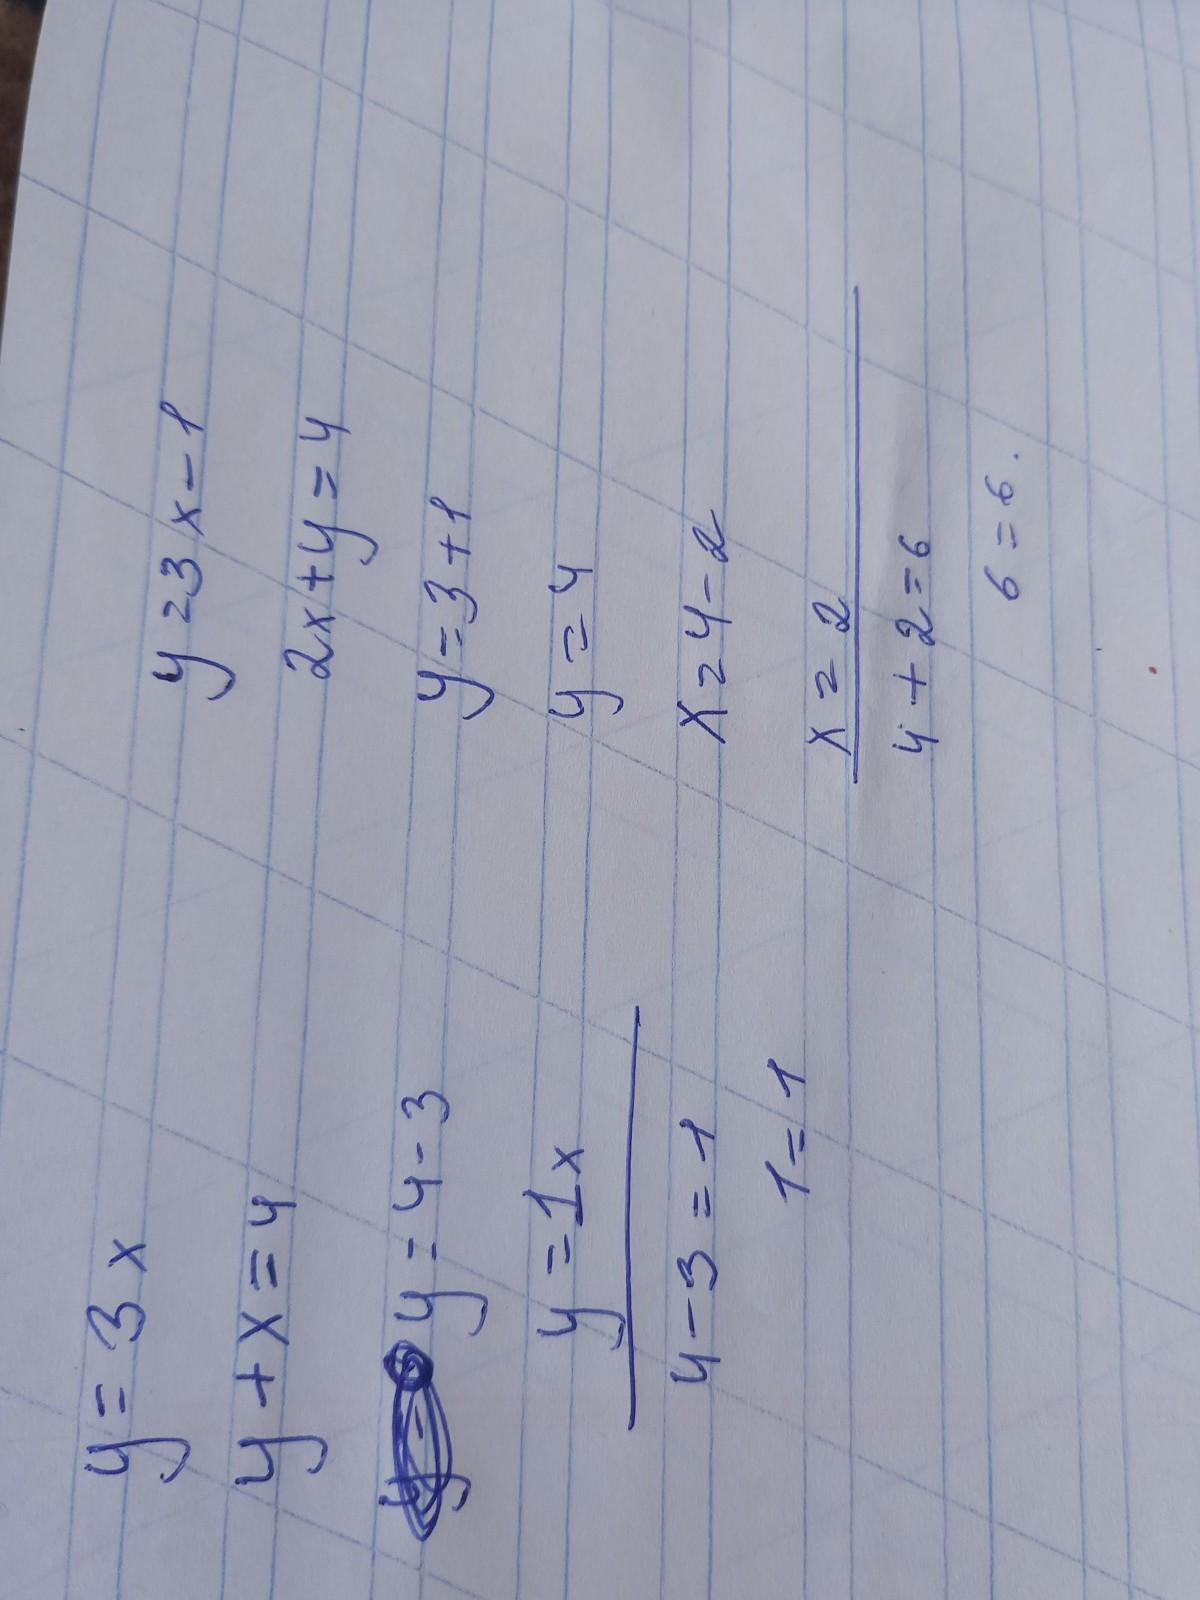 y = 3x
y + x = 4
y = 4 - 3
y = 1x
4 - 3 = 1
1 = 1
y = 3x - 1
2x + y = 4
y = 3 + 1
y = 4
x = 4 - 2
x = 2
4 + 2 = 6
6 = 6.